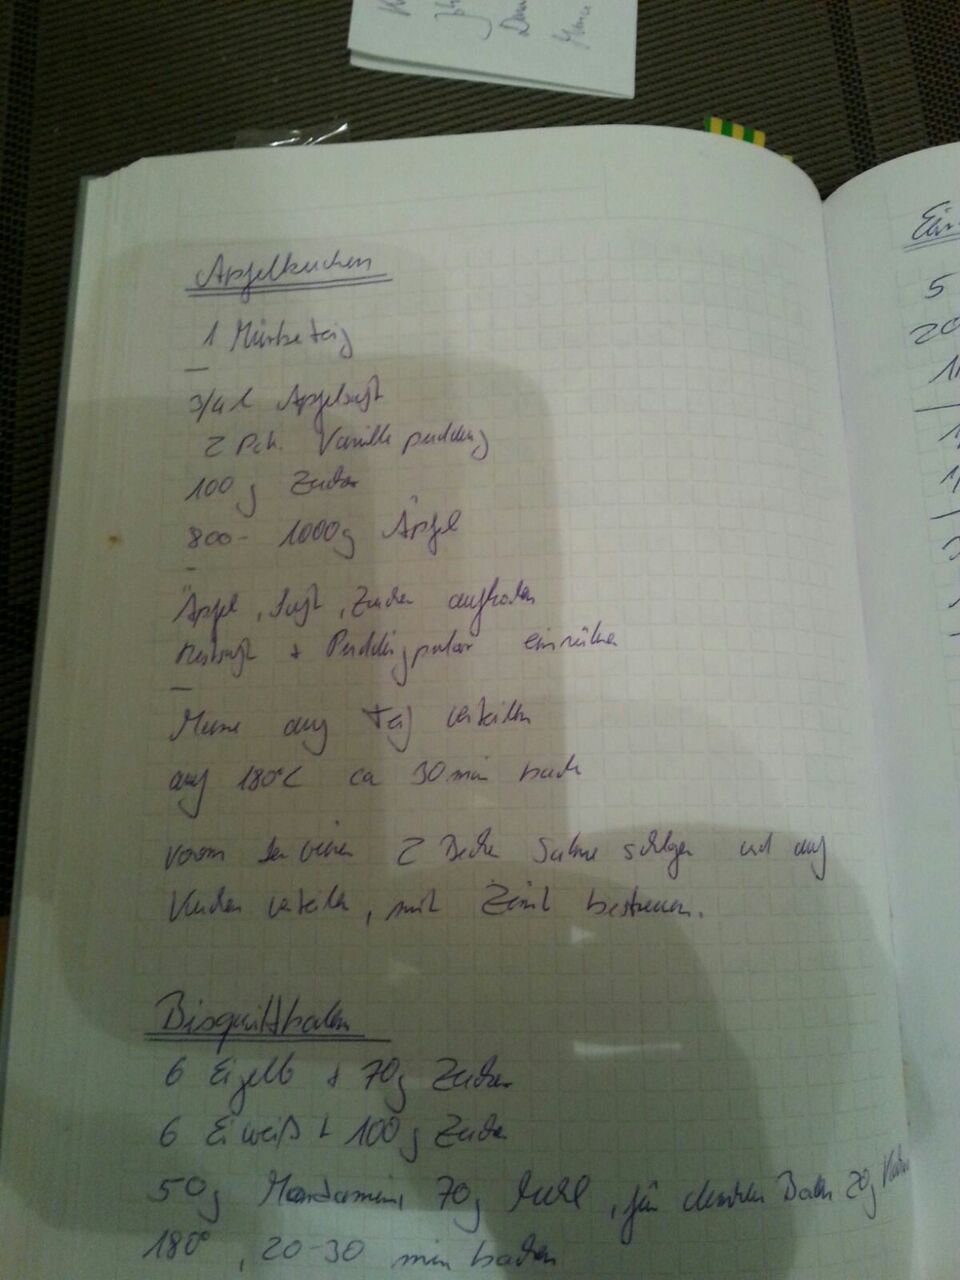 Apfelkuchen
1 Mürbeteig
3/4 l Apfelsaft
2 Pck. Vanillepudding
100 g Zucker
800 - 1000g Äpfel
Äpfel, Saft, Zucker aufkochen
Restsaft + Puddingpulver einrühren
Masse auf Teig verteilen
auf 180°C ca 30 min backen
vorm Servieren 2 Becher Sahne schlagen und auf
Kuchen verteilen, mit Zimt bestreuen.
Bisquittboden
6 Eigelb + 70g Zucker
6 Eiweiß + 100g Zucker
50g Mondamin, 70g Mehl, für dunklen Boden 20g
180°, 20-30 min backen
5
20